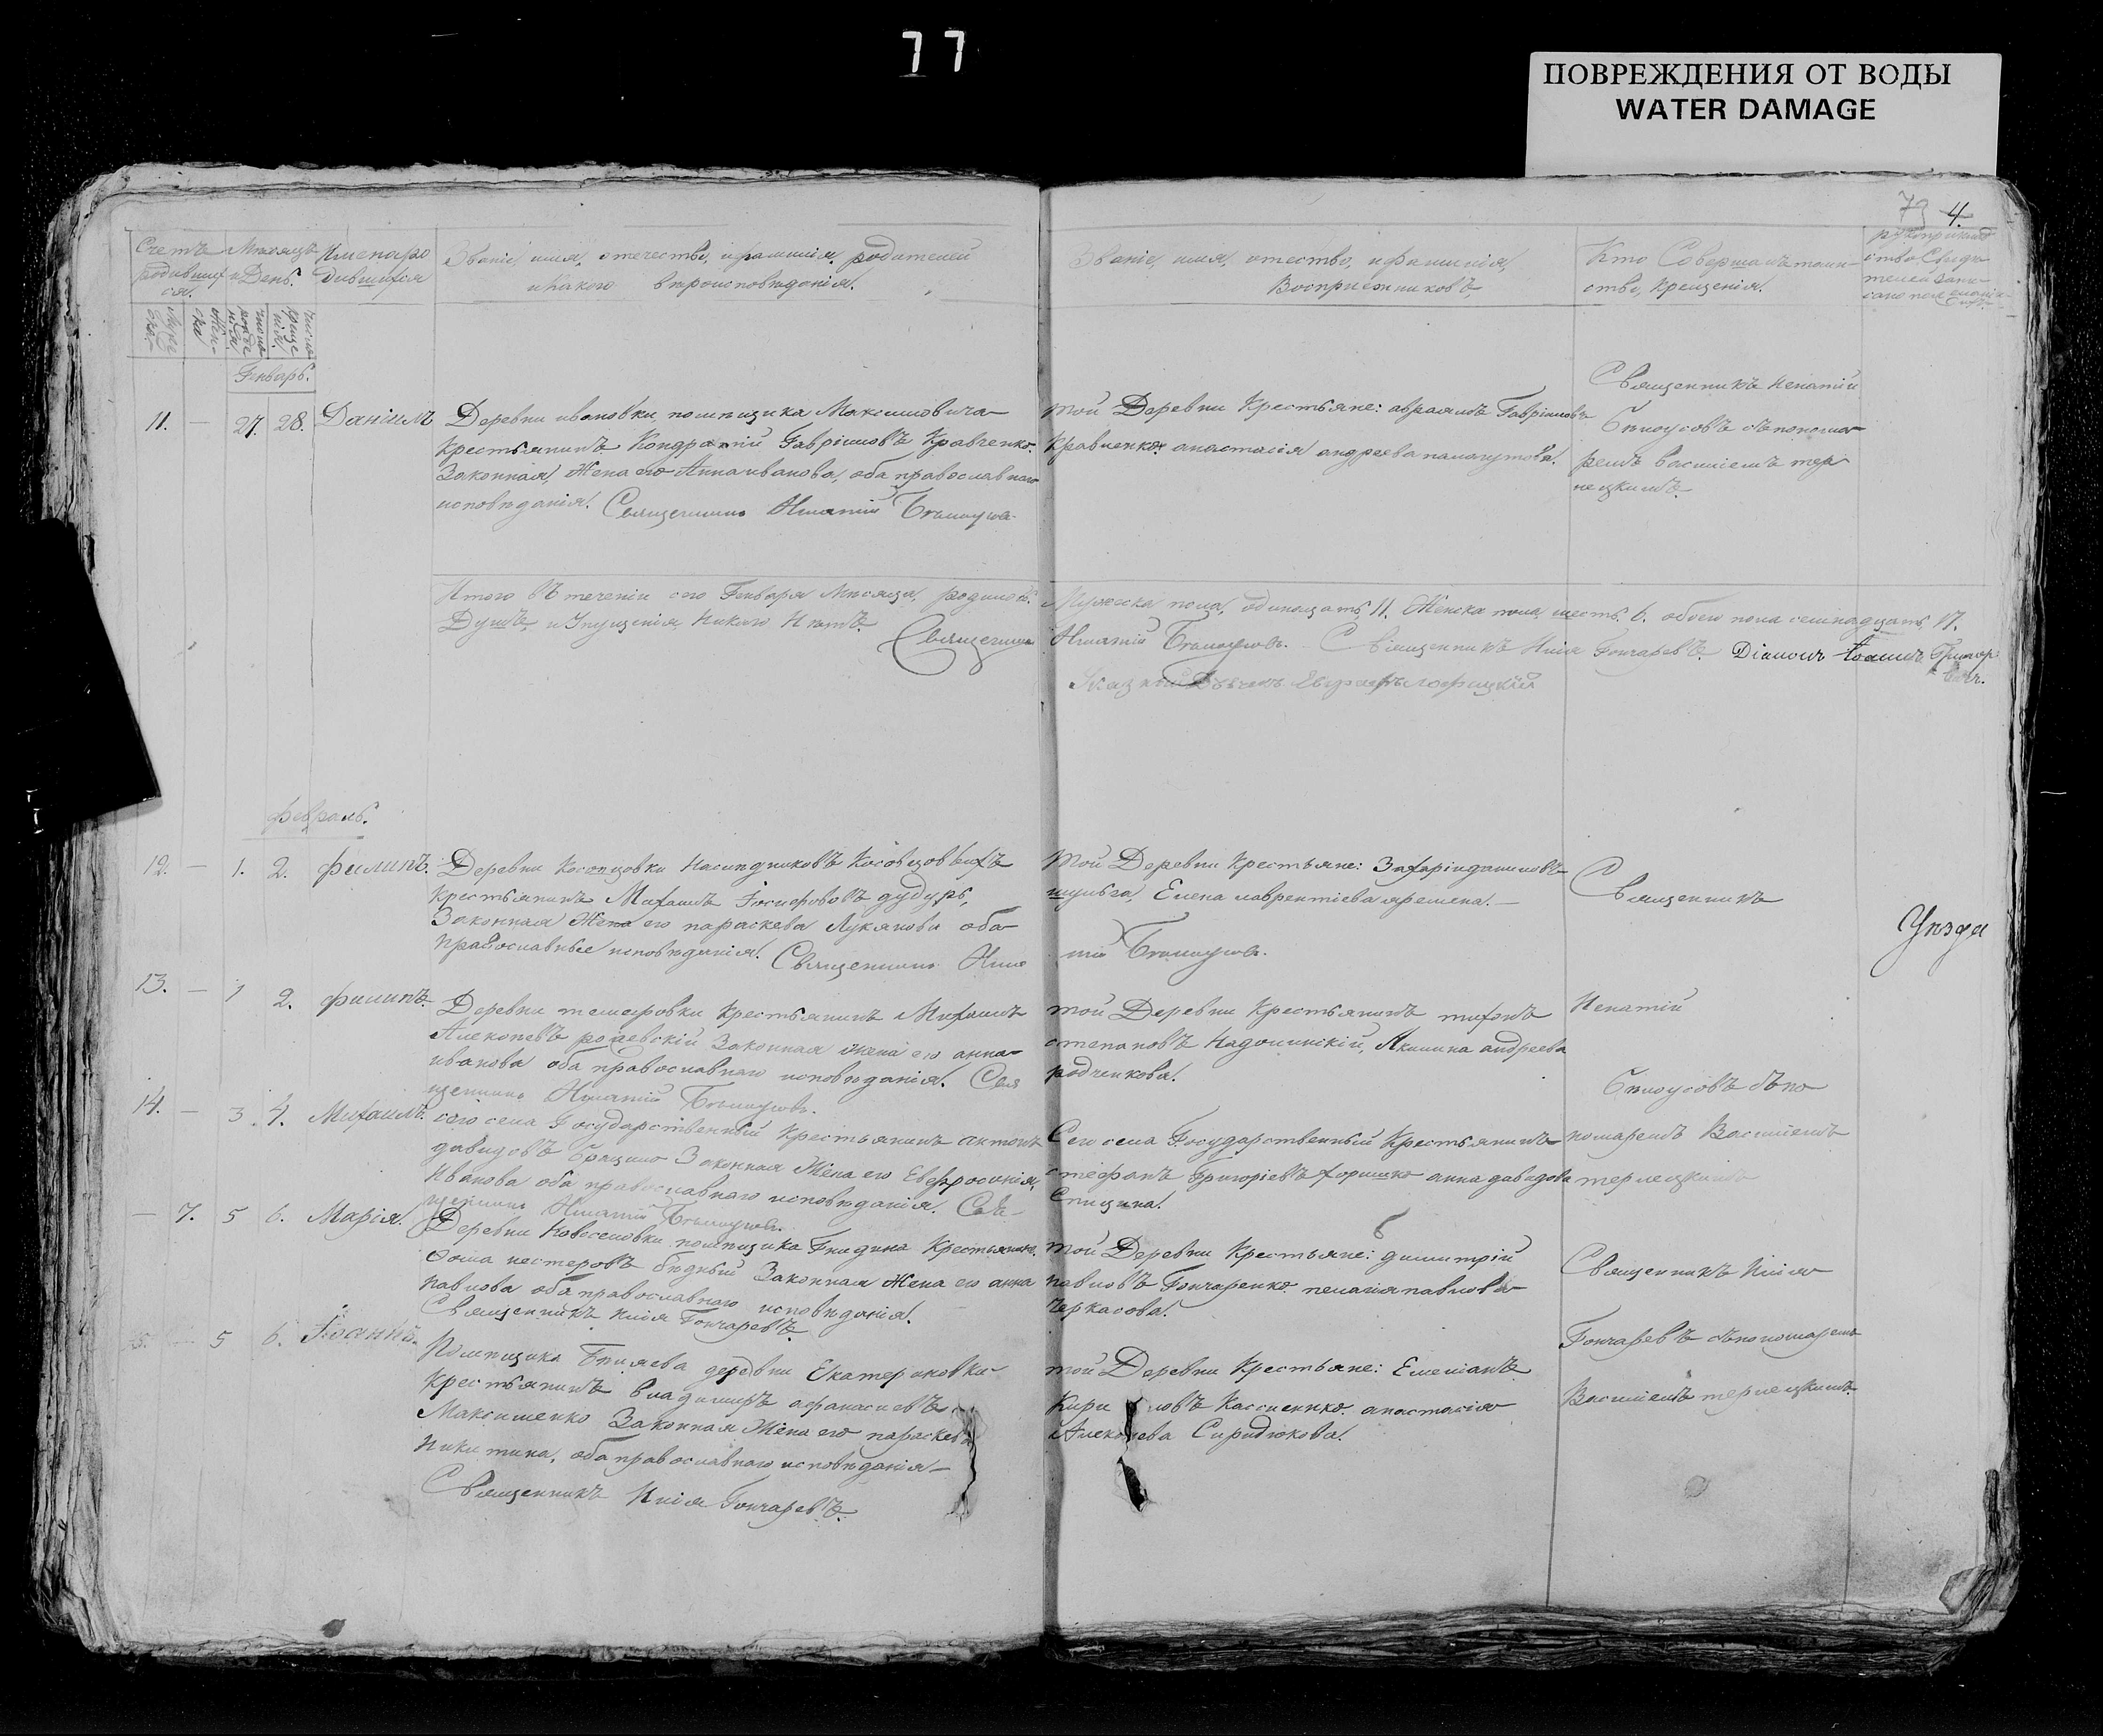 77
ПОВРЕЖДЕНИЯ ОТ ВОДЫ
WATER DAMAGE
79 4
Счетъ родившихся.
Мѣсяцъ и День.
Имена родившихся
Званіе, имя, отечество, и фамилія, родителей
и какого вѣроисповѣданія.
Званіе, имя, отество, и фамилія,
Воспріемниковъ
Кто Совершалъ таин-
ство, крещенія.
Генварь.
11. — 27. 28. Даніилъ
Деревни ивановки, помѣщика Максимовича
Крестьянинъ Кондратій Гавріиловъ Кравченко.
Законная Жена его Анна иванова, оба православнаго
исповѣданія. Священникъ Игнатій Бѣлоусовъ
той Деревни Крестьяне: авраамъ Гавріиловъ
Кравченко. анастасія андреева
Священникъ Игнатій
Бѣлоусовъ съ понома
ремъ василіемъ тер
лецкимъ.
Итого въ теченіи сего Генваря Мѣсяца, родилось.
Душъ, и Упущенія, Никого Нѣтъ. Священникъ
Мужеска пола, одинацать, 11. Женска пола, шесть. 6. обоего пола семнадцать, 17.
Игнатій Бѣлоусовъ. Священникъ Илія Гончаревъ. Діаконъ Іоаннъ Григор
вичъ.
Февраль.
12. — 1. 2. Филипъ.
Деревни Косовцовки Наслѣдниковъ Косовцовыхъ
Крестьянинъ Михаилъ Іосифовъ дударь,
Законная Жена его параскева Лукянова оба
православные исповѣданія. Священникъ Игна
той Деревни Крестьяне: Захарій даниловъ
шульга, Елена лаврентіева яремена. —
тій Бѣлоусовъ.
Священникъ
Уѣзда
13. — 1 2. Филипъ.
Деревни темеровки Крестьянинъ Михаилъ
Алексѣевъ Законная жена его анна
иванова оба православнаго исповѣданія. Свя
щенникъ Игнатій Бѣлоусовъ.
той Деревни Крестьянинъ тихонъ
степановъ Надолинскій, Якилина андреева
родченкова.
Игнатій
14. — 3. 4. Михаилъ.
сего села Государственный Крестьянинъ антонъ
давидовъ Законная Жена его Евфросинія,
Иванова оба православнаго исповѣданія. Свя
щенникъ Игнатій Бѣлоусовъ.
Сего села Государственный Крестьянинъ
стефанъ Григоріевъ анна давидова
Спицина.
Бѣлоусовъ съ по
номаремъ Василіемъ
терлецкимъ
— 7. 5 6. Марія.
Деревни Новоселовки помѣщика Гнидина Крестьянинъ
Ѳома нестеровъ бѣдный Законная Жена его анна
павлова оба православнаго исповѣданія.
Священникъ Илія Гончаревъ.
той Деревни Крестьяне: димитрій
павловъ Гончаренко. пелагія павлова
Черкасова.
Священникъ Илія
15. — 5 6. Іоаннъ.
Помѣщика Бѣляева деревни Екатериновки
Крестьянинъ владимиръ афанасіевъ
Максименко Законная Жена его параскева
Никитина, оба православнаго исповѣданія —
Священникъ Илія Гончаревъ.
той Деревни Крестьяне: Емеліанъ
Кири ловъ анастасія
Алексѣева Спиридюкова.
Гончаревъ съ пономаремъ
Василіемъ терлецкимъ.